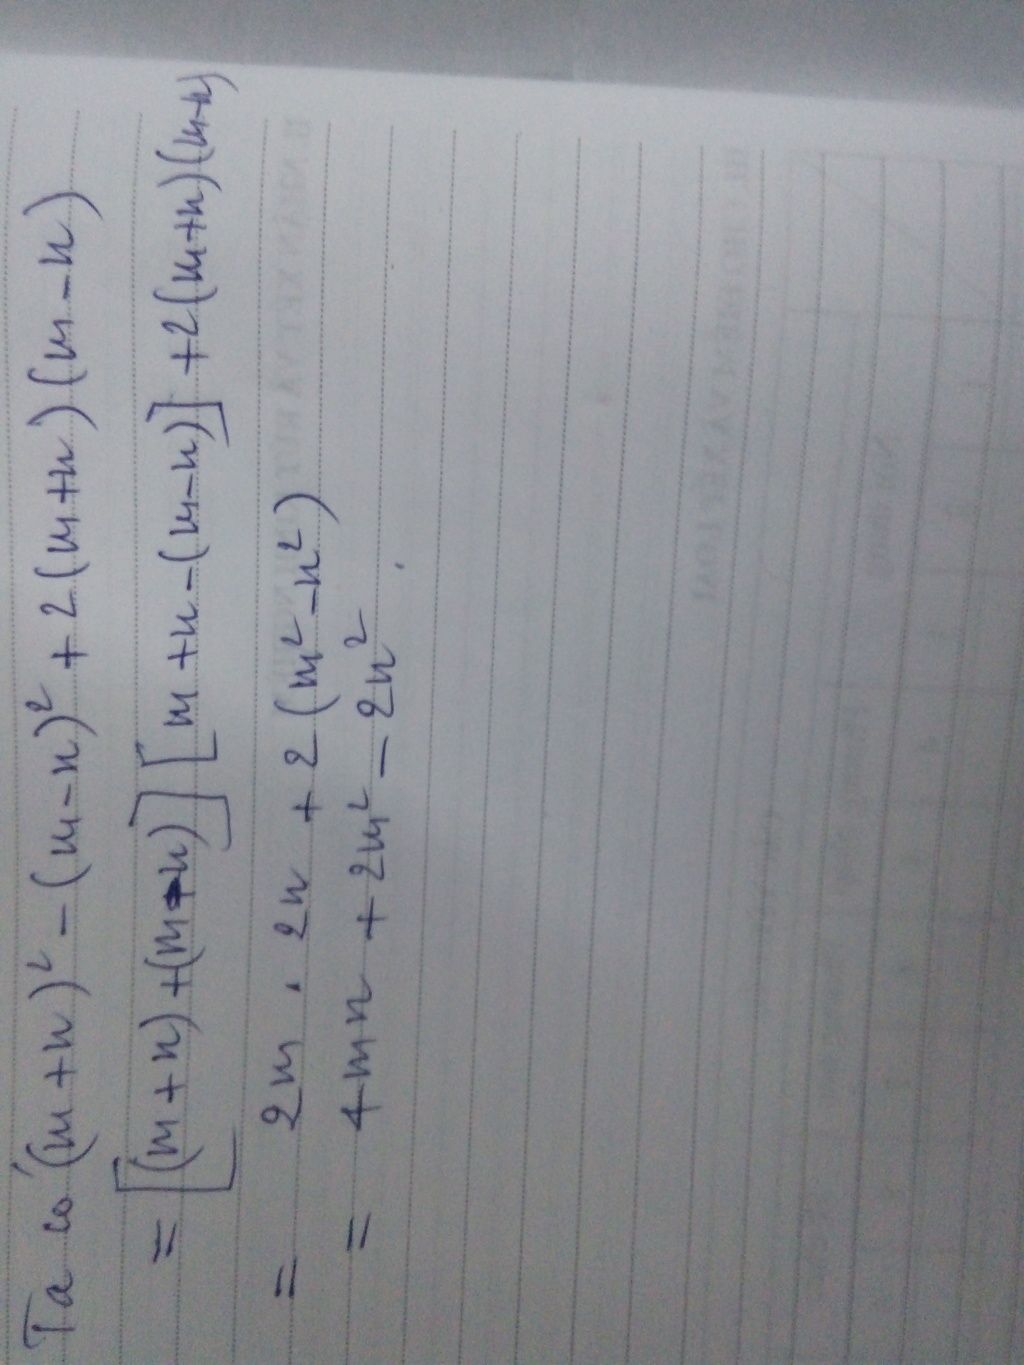 Ta có (m+n)² - (m-n)² + 2(m+n)(m-n)
= [(m+n)+(m-n)][m+n-(m-n)] + 2(m+n)(m-n)
= 2m . 2n + 2(m²-n²)
= 4mn + 2m² - 2n².